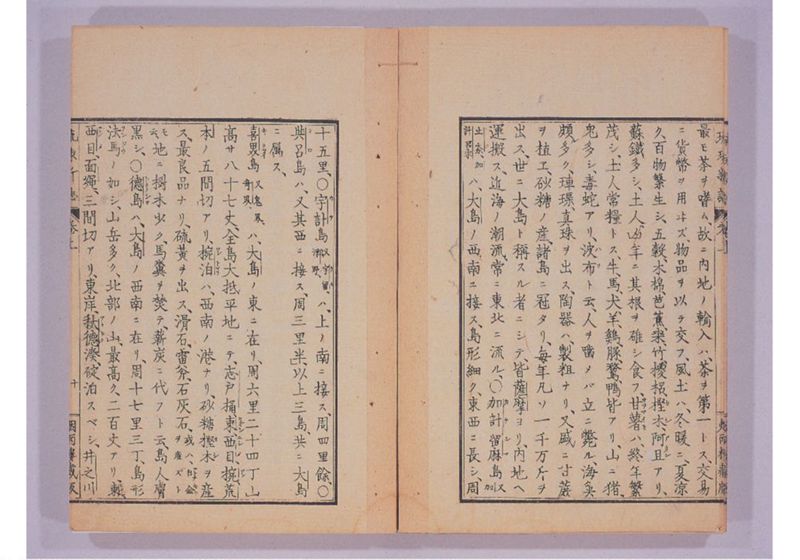 最モ茶ヲ嗜ム、故ニ内地ノ輸入ハ、茶ヲ第一トス、交易
ニ貨幣ヲ用ヰズ、物品ヲ以テ交フ、風土ハ、冬暖ニ夏涼
ク、百物繁生シ、五穀木棉芭蕉棕竹榕樫木阿且アリ、
蘇鐵多シ、土人凶年ニ其根ヲ碓シ食フ、甘薯ハ終年繁
茂シ、土人常糧トス、牛馬犬羊鷄豚鶩鴨皆アリ、山ニ猪
兎多シ、毒蛇アリ、波布ト云、人ヲ噛メバ立ニ斃ル、海兵
頗多ク、真珠ヲ出ス、陶器ハ、製粗ナリ、又盛ニ甘蔗
ヲ植エ、砂糖ノ産諸島ニ冠タリ、毎年凡ソ一千万斤ヲ
出ス、世ニ大島ト稱スル者ニシテ皆薩摩ヨリ、内地ヘ
運搬ス、近海ノ潮流常ニ東北ニ流ル、〇加計留麻島 又加
ハ、大島ノ西南ニ接ス、島形細ク、東西ニ長シ、周
十五里、〇宇計島 ハ、上ノ南ニ接ス、周四里餘、〇
與呂島ハ、又其西ニ接ス、周三里半、以上三島共ニ大島
ニ屬ス、
喜界島 ハ、大島ノ東ニ在リ、周六里二十四丁、山
高サ八十七丈、全島大抵平地ニテ、志戸桶東西目捥荒
木ノ五間切アリ、捥泊ハ、西南ノ港ナリ、砂糖樫木ヲ産
ス、最良品ナリ、硫黄ヲ出ス、滑石雷斧石灰石 ヲ産ズト
云 モ地ニ樹木少ク、馬糞ヲ焚テ、薪炭ニ代フト云、島人膚
黒シ、〇徳島ハ、大島ノ西南ニ在リ、周十七里三丁、島形
法馬ノ如シ、山岳多ク、北部ノ山、最高ク、二百丈アリ、東
西目、面縄、三間切アリ、東岸秋徳湊碇泊スベシ、井之川
十